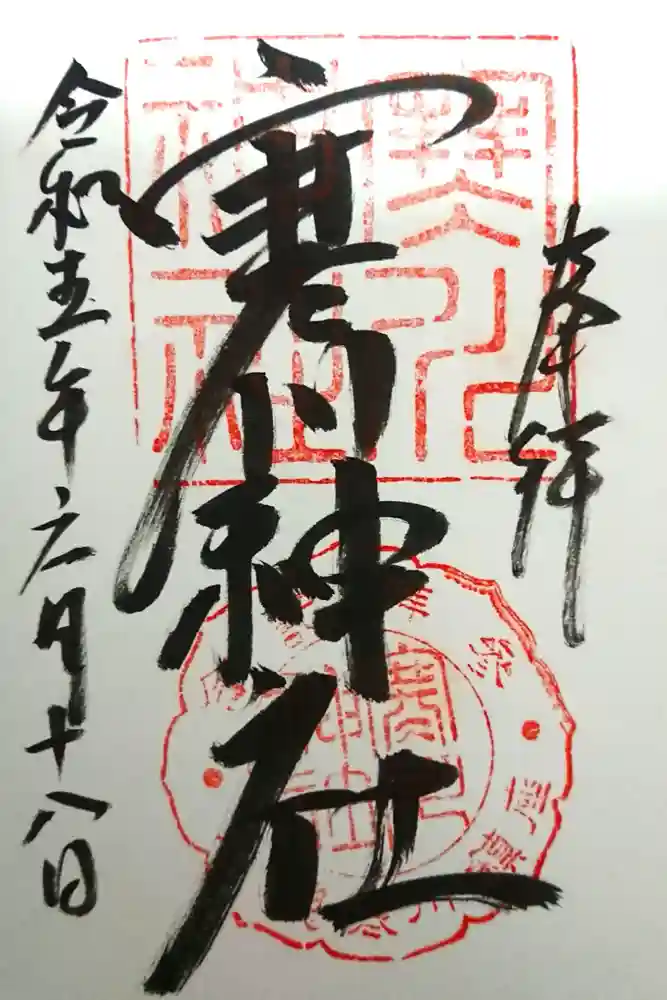 奉拝
寒川神社
令和五年六月十八日
寒川
神社